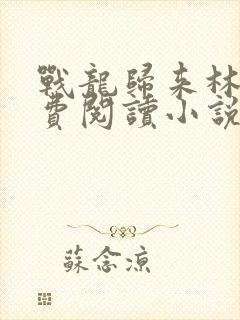 戰龍歸來林
費閱讀小說
蘇念涼